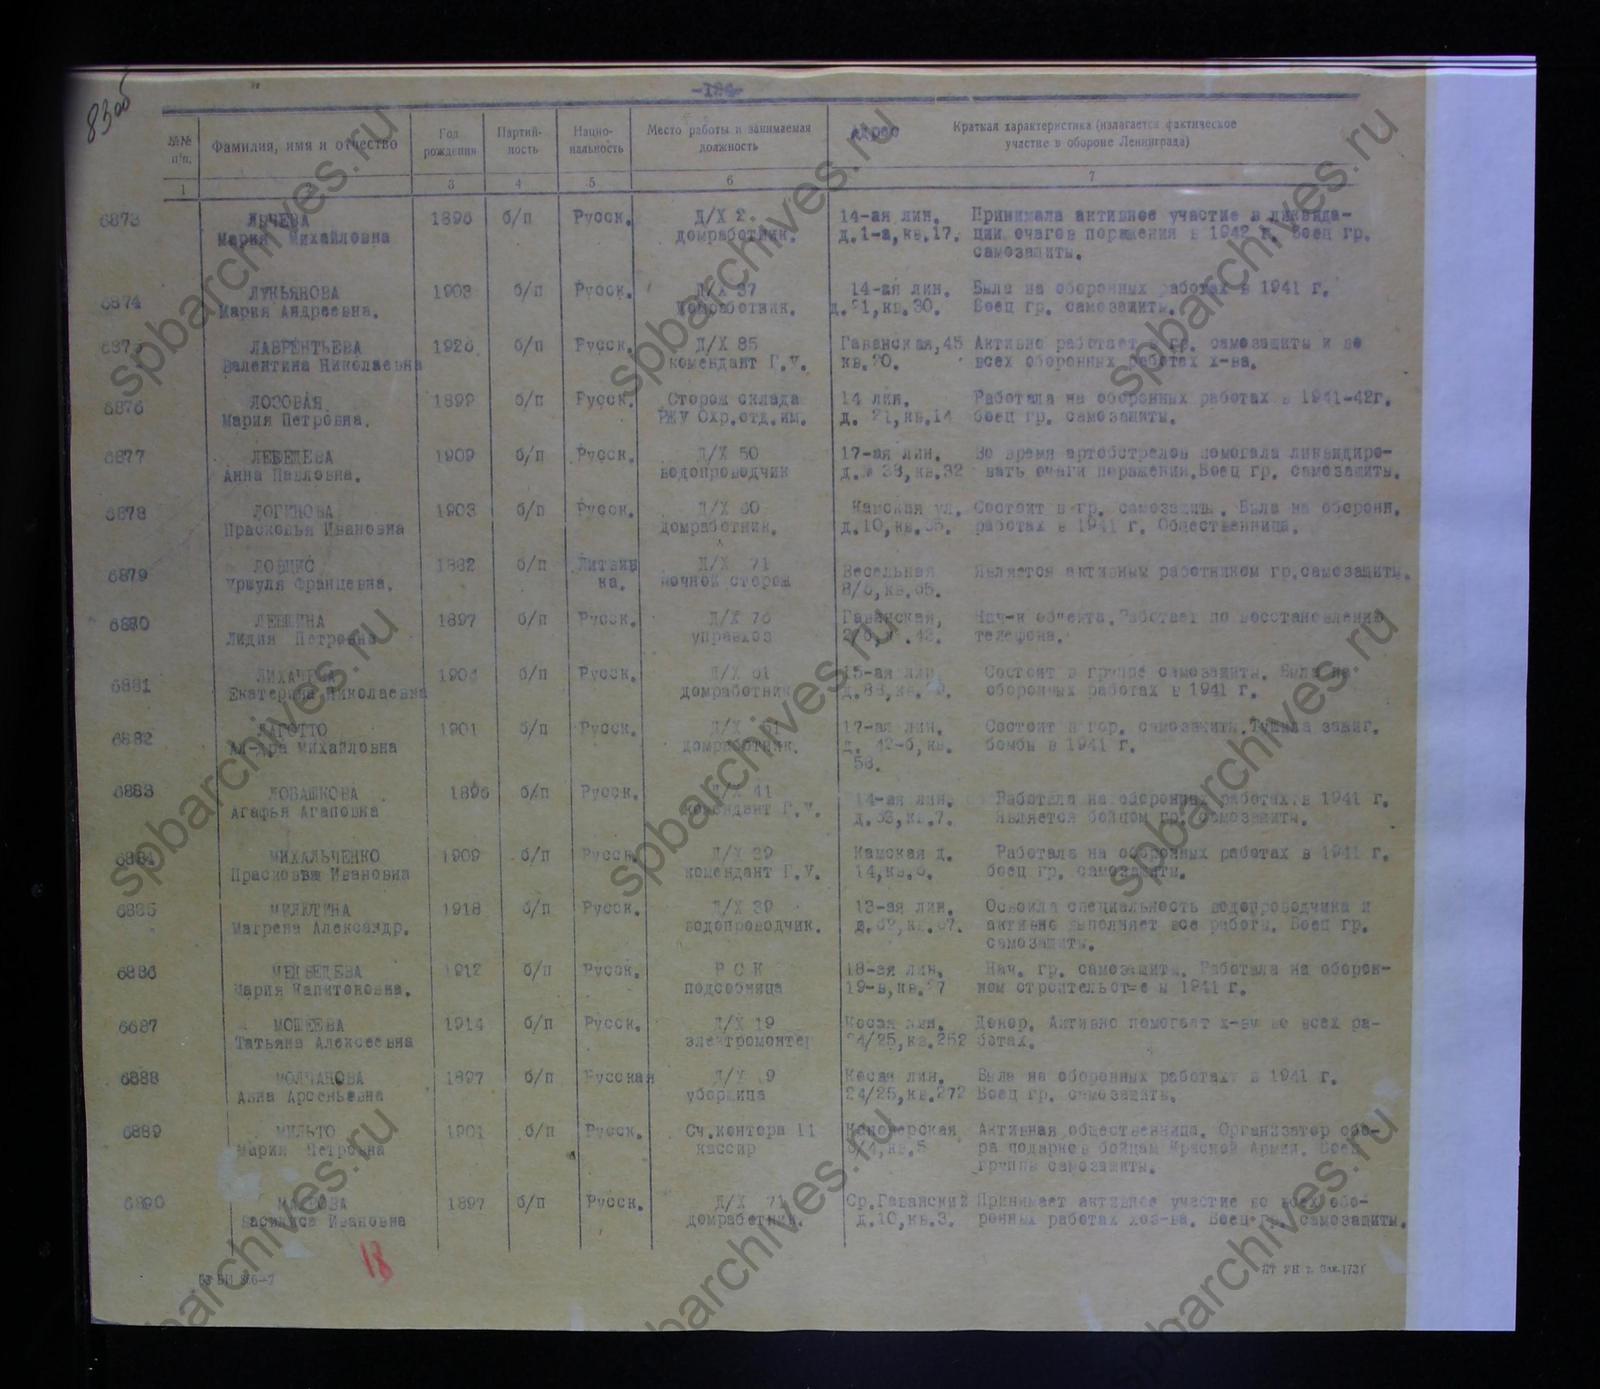 83об
-124-
№№ п/п.
Фамилия, имя и отчество
Год рождения
Партий-ность
Нацио-нальность
Место работы и занимаемая должность
Адрес
Краткая характеристика (излагается фактическое участие в обороне Ленинграда)
1 3 4 5 6 7
6873 ЛЫЧЕВА 1896 б/п Русск. Д/Х 2. 14-ая лин. Принимала активное участие в ликвида-
Мария Михайловна домработник. д.1-а, кв.17. ции очагов поражения в 1942 г. Боец гр.
самозащиты.
6874 ЛУКЬЯНОВА 1903 б/п Русск. Д/Х 37 14-ая лин. Была на оборонных работах в 1941 г.
Мария Андреевна. домработник. д. 21, кв.30. Боец гр. самозащиты.
6875 ЛАВРЕНТЬЕВА 1926 б/п Русск. Д/Х 85 Гаванская,45 Активно работает в гр. самозащиты и во
Валентина Николаевна комендант Г.У. кв.20. всех оборонных работах х-ва.
6876 ЛОЗОВАЯ 1899 б/п Русск. Сторож склада 14 лин. Работала на оборонных работах в 1941-42г.
Мария Петровна. РЖУ Охр.отд.им. д. 21, кв.14 боец гр. самозащиты.
6877 ЛЕБЕДЕВА 1909 б/п Русск. Д/Х 50 17-ая лин. Во время артобстрелов помогала ликвидиро-
Анна Павловна. водопроводчик д.# 38, кв.32 вать очаги поражения.Боец гр. самозащиты.
6878 ЛОГИНОВА 1903 б/п Русск. Д/Х 60 Камская ул. Состоит в гр. самозащиты. Была на оборонн.
Прасковья Ивановна домработник. д.10, кв.35. работах в 1941 г. Общественница.
6879 ЛОВЦИС 1882 б/п Литвин Д/Х 71 Весельная Является активным работником гр.самозащиты.
Уршуля Францевна. ка. ночной сторож 8/6, кв.65.
6880 ЛЕВШИНА 1897 б/п Русск. Д/Х 76 Гаванская, Нач-к объекта. Работает по восстановлению
Лидия Петровна управхоз 2/6, кв.42. телефона.
6881 ЛИХАЧЕВА 1904 б/п Русск. Д/Х 61 15-ая лин. Состоит в группе самозащиты. Была на
Екатерина Николаевна домработник д.88, кв. оборонных работах в 1941 г.
6882 ЛАГОТТО 1901 б/п Русск. Д/Х 17-ая лин. Состоит в гор. самозащиты.Тушила зажиг.
Ал-дра Михайловна домработник. д. 42-б, кв. бомбы в 1941 г.
58.
6883 ЛОВАШКОВА 1896 б/п Русск. Д/Х 41 14-ая лин. Работала на оборонных работах в 1941 г.
Агафья Агаповна комендант Г.У. д.63, кв.7. Является бойцом гр. самозащиты.
6884 МИХАЛЬЧЕНКО 1909 б/п Русск. Д/Х 39 Камская д. Работала на оборонных работах в 1941 г.
Прасковья Ивановна комендант Г.У. 14, кв.6. боец гр. самозащиты.
6885 МИЛЮТИНА 1918 б/п Русск. Д/Х 39 13-ая лин. Освоила специальность водопроводчика и
Матрена Александр. водопроводчик. д.62, кв.67. активно выполняет все работы. Боец гр.
самозащиты.
6886 МЕДВЕДЕВА 1912 б/п Русск. Р С К 18-ая лин. Нач. гр. самозащиты. Работала на оборон-
Мария Капитоновна. подсобница 19-в, кв.27 ном строительстве в 1941 г.
6687 МОШЕЕВА 1914 б/п Русск. Д/Х 19 Косая лин. Донор. Активно помогает х-ву во всех ра-
Татьяна Алексеевна электромонтер 24/25, кв.252 ботах.
6888 МОЛЧАНОВА 1897 б/п Русская Д/Х 19 Косая лин. Была на оборонных работах в 1941 г.
Анна Арсеньевна уборщица 24/25, кв.272 Боец гр. самозащиты.
6889 МИЛЬТО 1901 б/п Русск. Сч.контора 11 Канонерская Активная общественница. Организатор сбо-
Мария Петровна кассир кв.5 ра подарков бойцам Красной Армии. Боец
группы самозащиты.
6890 б/п 1897 Русск. Д/Х 71 Ср.Гаванский Принимает активное участие во всех обо-
Василиса Ивановна домработник. д.10, кв.3. ронных работах хоз-ва. Боец гр. самозащиты.
18
spbarchives.ru
spbarchives.ru
spbarchives.ru
spbarchives.ru
spbarchives.ru
spbarchives.ru
spbarchives.ru
spbarchives.ru
spbarchives.ru